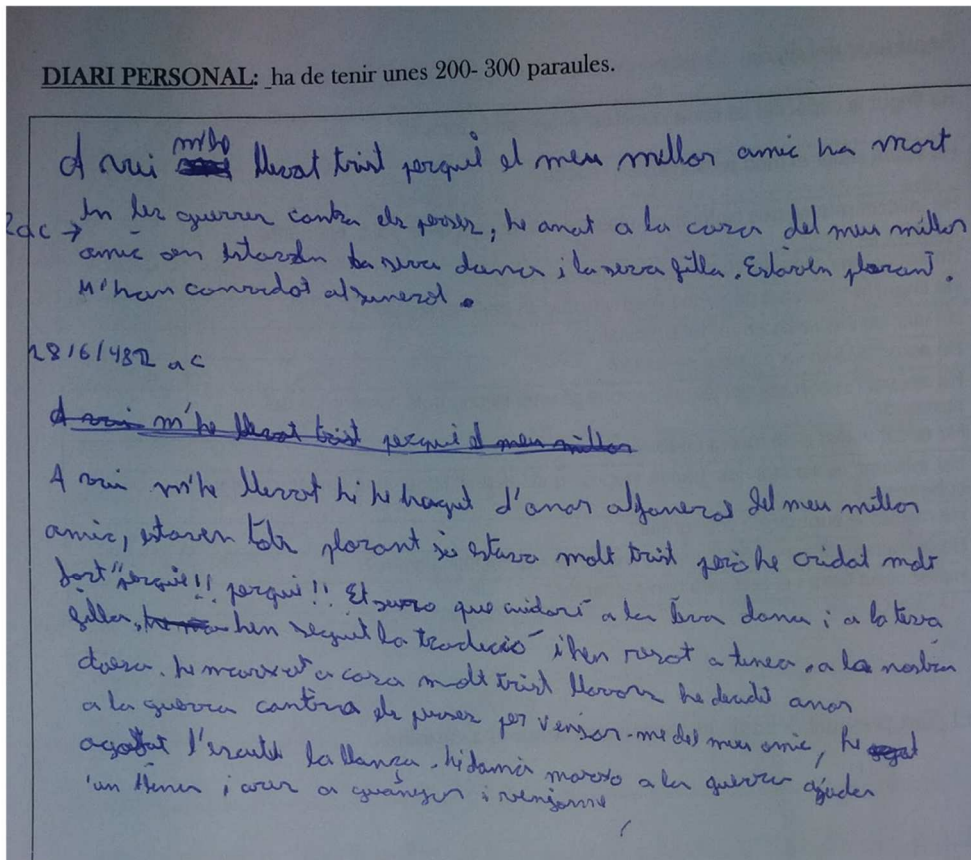 DIARI PERSONAL: ha de tenir unes 200- 300 paraules.
A vui m'he llevat trist perquè el meu millor amic ha mort
En les guerres contra els perses, he anat a la casa del meu millor
ac → amic on estaven la seva dona i la seva filla. Estaven plorant.
M'han convidat al funeral.
28/6/482 ac
A vui m'he llevat trist perquè el meu millor
A vui m'he llevat hi he hagut d'anar al funeral del meu millor
amic, estaven tots plorant jo estava molt trist però he cridat molt
fort "perquè!! perquè!! Et juro que cuidaré a la teva dona i a la teva
filla, hen seguit la tradució i hen resat a tenea, a la nostra
deesa. he marxat a casa molt trist llavors he decidit anar
a la guerra contra els perses per venjar-me del meu amic, he
agafat l'escut i la llança. hi demà marxo a la guerra ajudar
a guanyar i venjarme